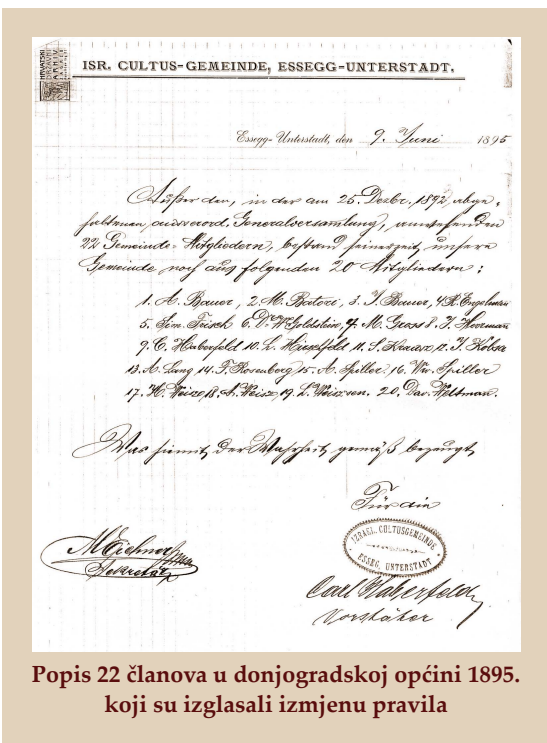 HRVATSKI DRŽAVNI ARHIV
ISR. CULTUS-GEMEINDE, ESSEGG-UNTERSTADT.
Essegg-Unterstadt, den 9. Juni 1895
Außer den, in der am 25. Dezbr. 1892, abge-
haltenen ausserord. Generalversamlung, anwesenden
22 Gemeinde-Mitgliedern, bestand seinerzeit unsere
Gemeinde noch aus folgenden 20 Mitgliedern:
1. A. Bauer, 2. M. 3. J. Bauer, 4. R. Engelman
5. Sim. Frisch 6. Dr. W. Goldstein, 7. M. Gross 8. J.
9. C. Haberfeld 10. L. Hirschfeld 11. S. Krausz 12. J.
13. A. Lang 14. F. Rosenberg 15. A. Spiller, 16. Wv. Spiller
17. H. Weisz, 18. A. Weisz, 19. L. Weisz sen. 20. Dav. Weltman.
Was hiemit der Wahrheit gemäß bezeugt
Für die
IZRAEL. CULTUSGEMEINDE
ESSEG, UNTERSTADT
M Eichner
Sekretär
Carl Haberfeld
Vorsteher
Popis 22 članova u donjogradskoj općini 1895.
koji su izglasali izmjenu pravila